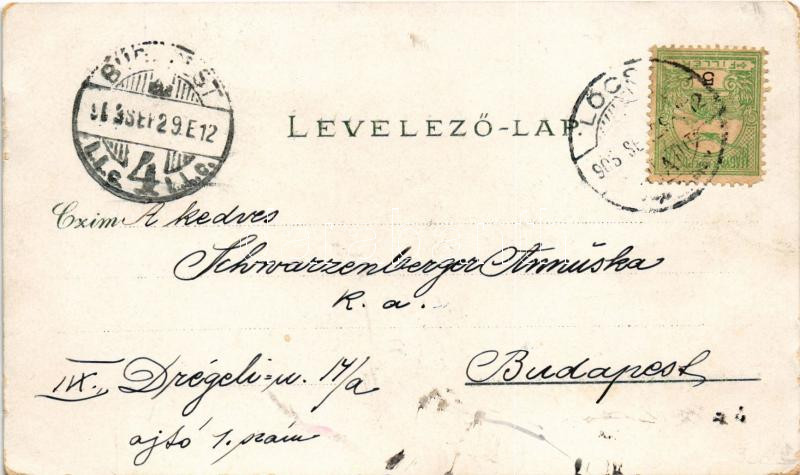 BUDAPEST
903 SEP 29. E 12
4
LEVELEZŐ-LAP.
LŐCS
905 SE
FILLÉR
5
Czim A kedves
Schwarzenberger Annuska
k. a.
IX. Drégeli-u. 17/a
Budapest
ajtó 1. szám